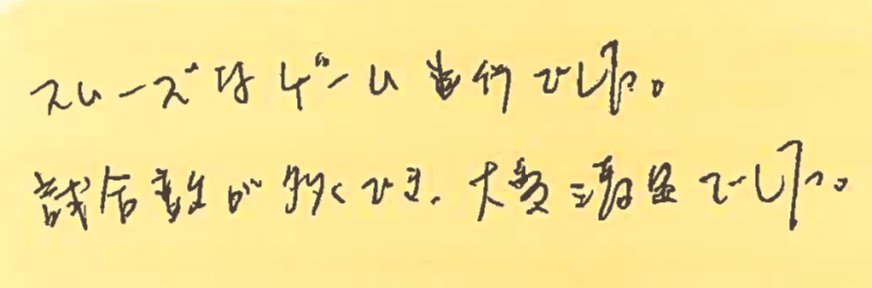 スムーズなゲーム進行でした。
試合数が多くでき、大変満足でした。